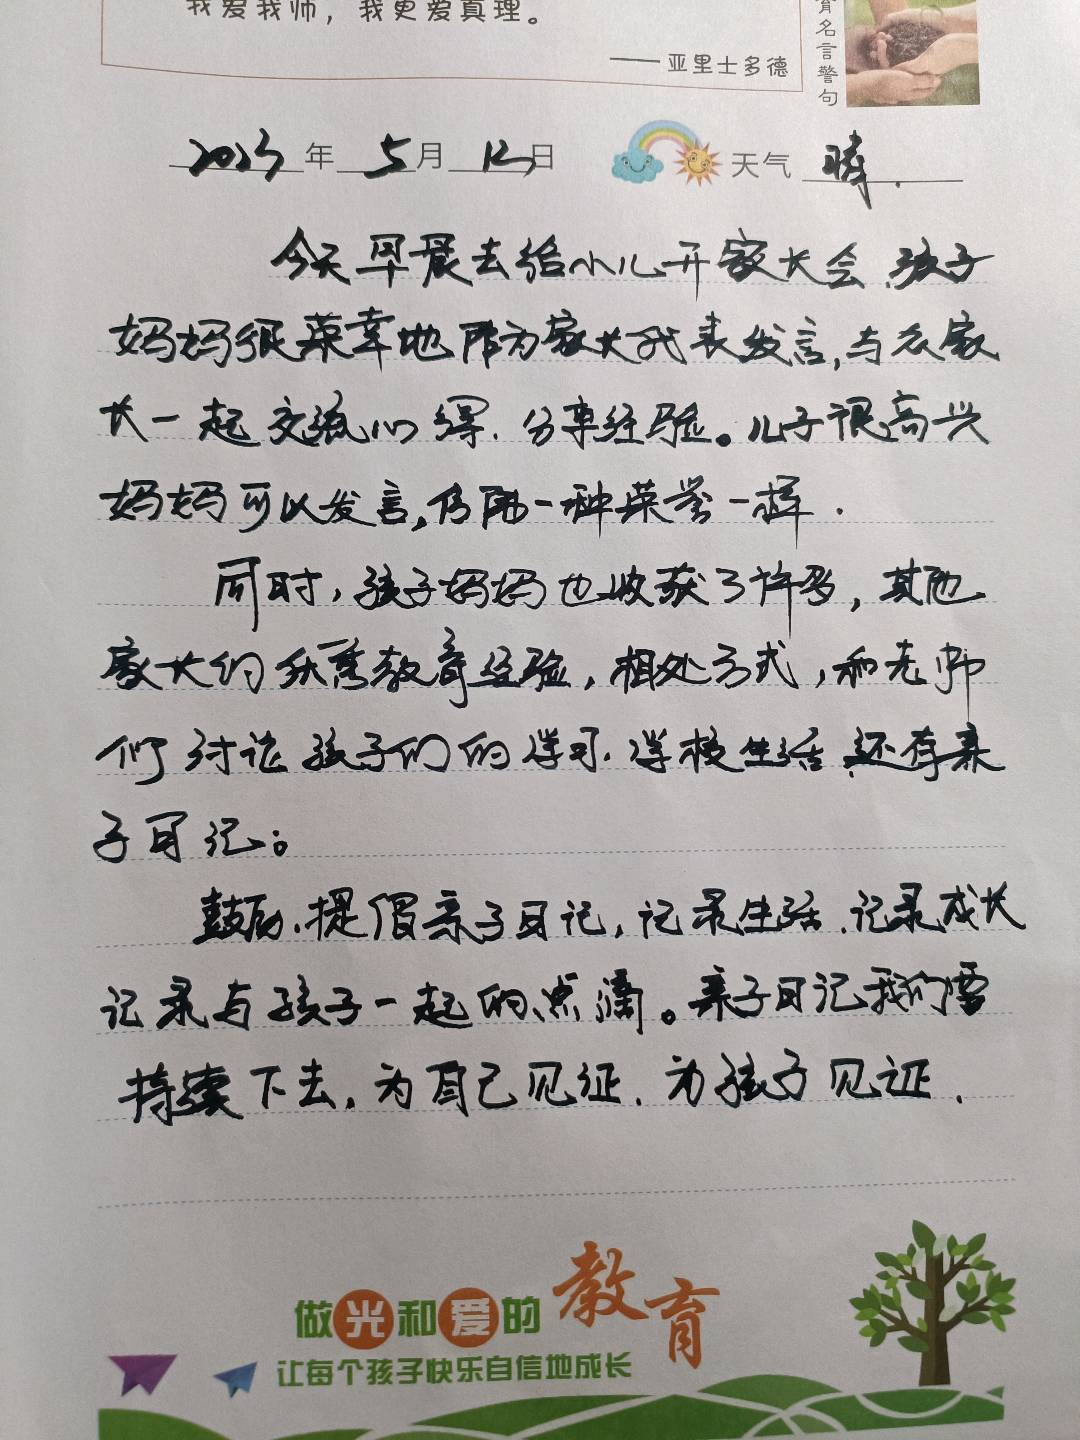 我爱我师，我更爱真理。
——亚里士多德
育名言警句
2023年5月12日 天气 晴.
今天早晨去给小儿开家长会、孩子
妈妈很荣幸地作为家长代表发言,与众家
长一起交流心得、分享经验。儿子很高兴
妈妈可以发言,仿佛一种荣誉一样.
同时,孩子妈妈也收获了许多,其他
家长们优秀教育经验,相处方式,和老师
们讨论孩子们的学习、学校生活、还有亲
子日记。
鼓励、提倡亲子日记,记录生活、记录成长
记录与孩子一起的点滴。亲子日记我们需
持续下去,为自己见证、为孩子见证.
做光和爱的教育
让每个孩子快乐自信地成长